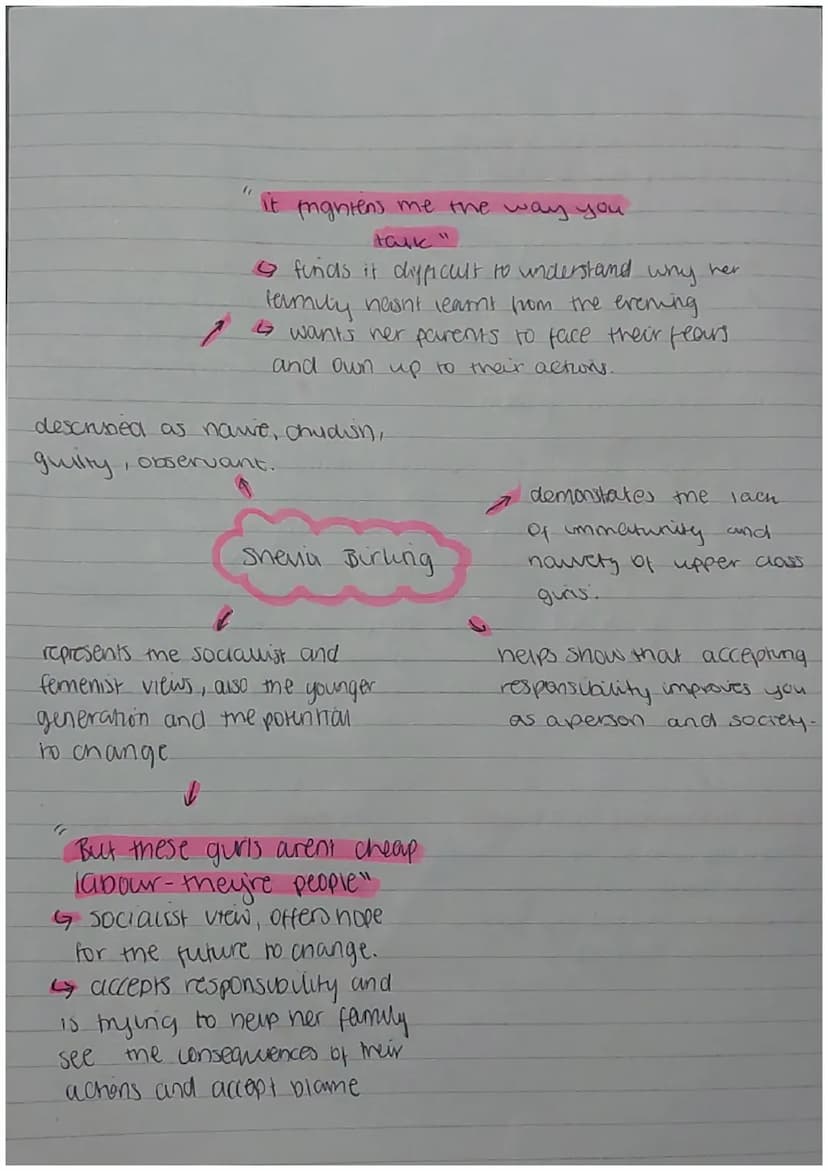 "it frightens me the way you
talk"
↳ finds it difficult to understand why her
family hasnt learnt from the evening
↳ wants her parents to face their fears
and own up to their actions.
described as naive, childish,
guilty, observant.
Sheila Birling
demonstrates the lack
of immaturity and
naivety of upper class
girls.
represents the socialist and
femenist views, also the younger
generation and the potential
to change
helps show that accepting
responsibility improves you
as a person and society.
"But these girls arent cheap
labour - they're people"
↳ socialist view, offers hope
for the future to change.
↳ accepts responsibility and
is trying to help her family
see the consequences of their
actions and accept blame